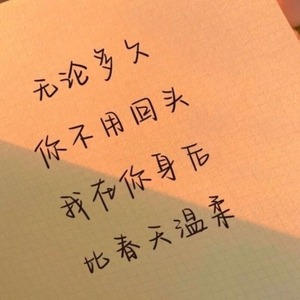 无论多久
你不用回头
我在你身后
比春天温柔